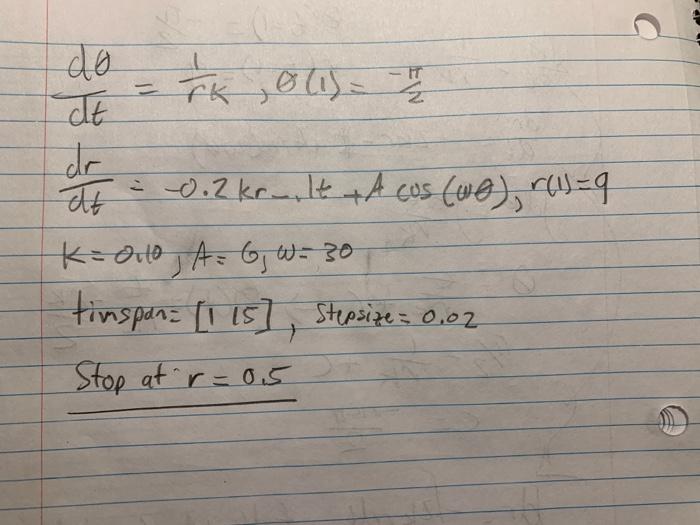 dθ/dt = 1/rK, θ(1) = -π/2
dr/dt = -0.2kr - .1t + A cos(ωθ), r(1)=9
K = 0.10, A = 6, ω = 30
timspan = [1 15], Stepsize = 0.02
Stop at r = 0.5